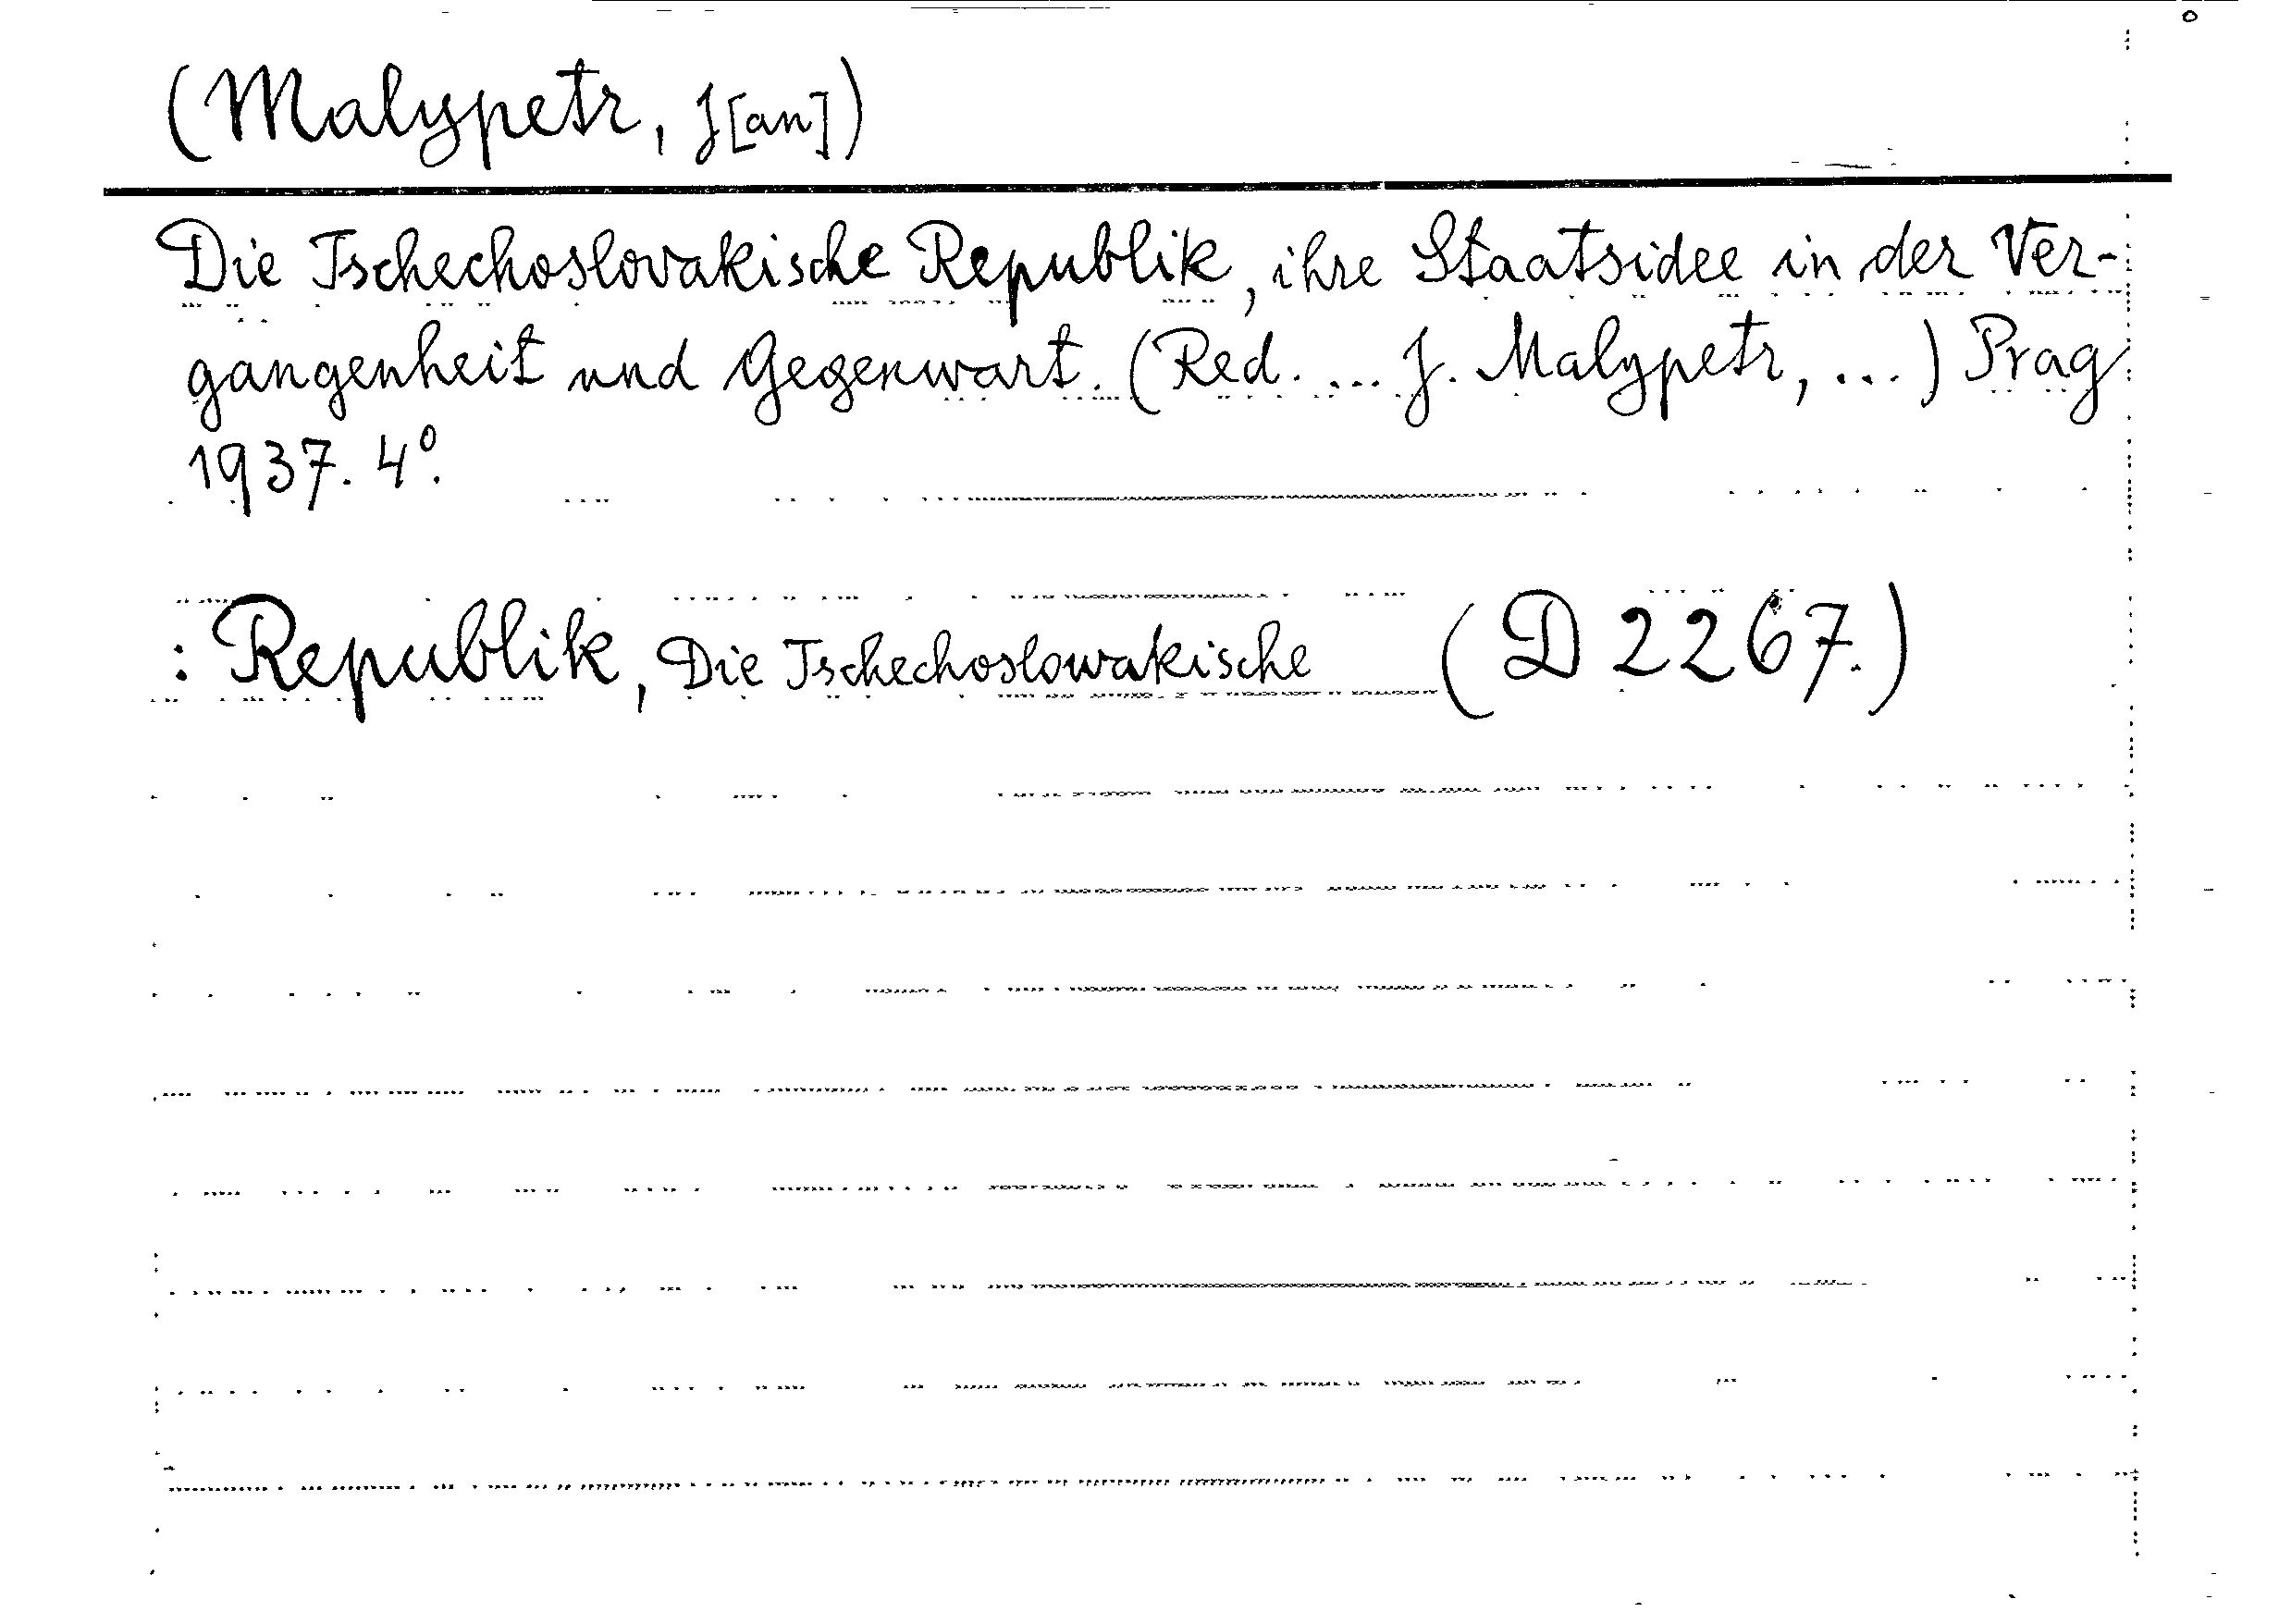 (Malypetr, J[an])
Die Tschechoslovakische Republik, ihre Staatsidee in der Ver-
gangenheit und Gegenwart. (Red. ... J. Malypetr, ...) Prag
1937. 4º.
: Republik, Die Tschechoslowakische (D 2267.)